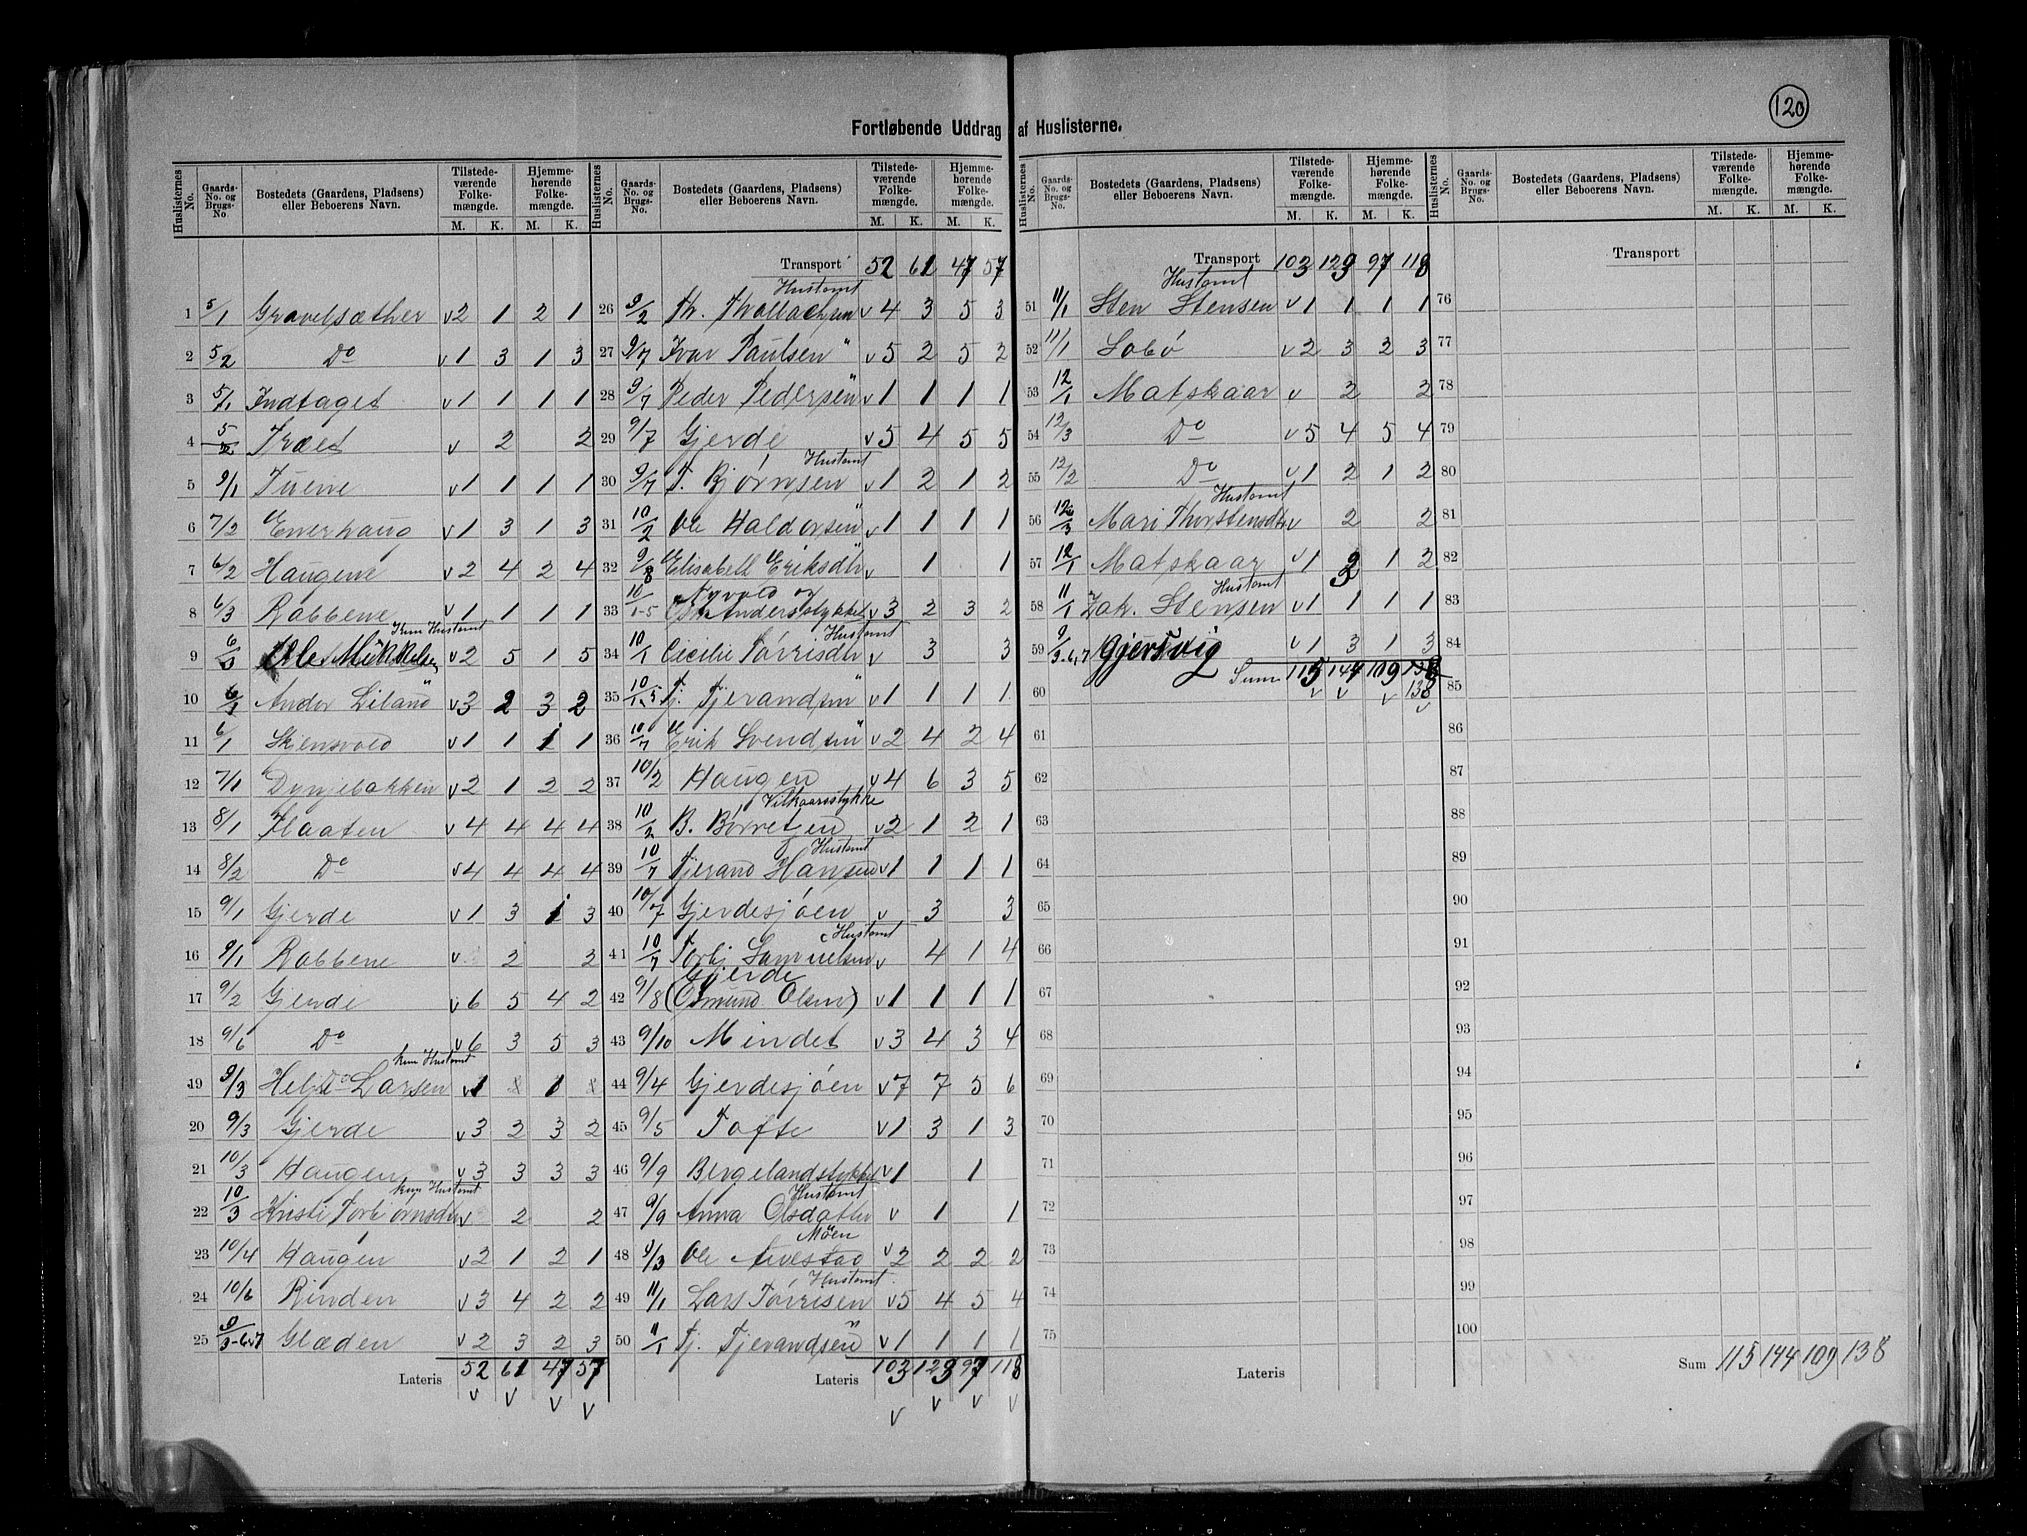 120
Fortløbende Uddrag af Huslisterne.
Huslisternes No. Gaards-No. og Brugs-No. Bostedets (Gaardens, Pladsens) eller Beboerens Navn. Tilstedeværende Folkemængde. M. K. Hjemmehørende Folkemængde. M. K.
1 5/1 Gravelsæther v2 1 2 1
2 5/2 Do v1 3 1 3
3 5/1 Indtaget v1 1 1 1
4 5/2 Træet v 2 2
5 9/1 Tuene v1 1 1 1
6 7/2 Enerhaug v1 3 1 3
7 6/2 Haugene v2 4 2 4
8 6/3 Rabbene v1 1 1 1
9 6/3 Ole Mikkelsen Kun Hustomt v2 5 1 5
10 6/1 Ander Liland " v3 2 3 2
11 6/1 Skjensvold v1 1 1 1
12 7/1 Dynjebakken v2 1 2 2
13 8/1 Flaaten v4 4 4 4
14 8/2 Do v4 4 4 4
15 9/1 Gjerde v1 3 1 3
16 9/1 Rabbene v 2 2
17 9/2 Gjerde v6 5 4 2
18 9/6 Do v6 3 5 3
19 9/3 Helje Larsen kun Hustomt v1 1
20 9/3 Gjerde v3 2 3 2
21 10/3 Haugen v3 3 3 3
22 10/3 Kristi Torbjørnsdtr kun Hustomt v 2 2
23 10/4 Haugen v2 1 2 1
24 10/6 Rinden v3 4 2 2
25 9/3-6,7 Glæden v2 3 2 3
Lateris 52 61 47 57
v v v v
Transport 52 61 47 57
26 9/2 Th. Thollachsen Hustomt v4 3 5 3
27 9/7 Ivar Paulsen " v5 2 5 2
28 9/7 Peder Pedersen " v1 1 1 1
29 9/7 Gjerde v5 4 5 5
30 9/7 T. Bjørnsen Hustomt v1 2 1 2
31 10/2 Ole Haldorsen " v1 1 1 1
32 9/8 Elisabell Eriksdtr " v 1 1
33 10/1-5 Nyvold og Andersstykket v3 2 3 2
34 10/1 Cicilie Tørrisdtr Hustomt v 3 3
35 10/1-5 Tj. Tjerandsen " v1 1 1 1
36 10/7 Erik Svendsen " v2 4 2 4
37 10/2 Haugen v4 6 3 5
38 10/2 B. Børretzen Vilkaarsstykke v2 1 2 1
39 10/7 Tjerand Hansen Hustomt v1 1 1 1
40 10/7 Gjerdesjøen v 3 3
41 10/7 Torbj Samuelsen Hustomt v 4 1 4
42 9/8 Gjerde (Osmund Olsen) v1 1 1 1
43 9/10 Mindet v3 4 3 4
44 9/4 Gjerdesjøen v7 7 5 6
45 9/5 Tofte v1 3 1 3
46 9/9 Bergelandstykket v1 1
47 9/9 Anna Olsdatter Hustomt v 1 1
48 9/3 Ole Aivestad Möen v2 2 2 2
49 11/1 Lars Tørrisen Hustomt v5 4 5 4
50 11/1 Tj. Tjerandsen " v1 1 1 1
Lateris 103 123 97 118
v v v v
Transport 103 123 97 118
51 11/1 Sten Stensen Hustomt v1 1 1 1
52 11/1 Sobø v2 3 2 3
53 12/1 Matskaar v 2 2
54 12/3 Do v5 4 5 4
55 12/2 Do v1 2 1 2
56 12/3 Mari Thorstensdtr Hustomt v 2 2
57 12/1 Matskaar v1 3 1 2
58 11/1 Zak. Stensen Hustomt v1 1 1 1
59 9/3-6,7 Gjersvig v1 3 1 3
60 Sum 115 144 109 138
138
v v v v
61
62
63
64
65
66
67
68
69
70
71
72
73
74
75
Lateris
Transport
76
77
78
79
80
81
82
83
84
85
86
87
88
89
90
91
92
93
94
95
96
97
98
99
100
Sum 115 144 109 138